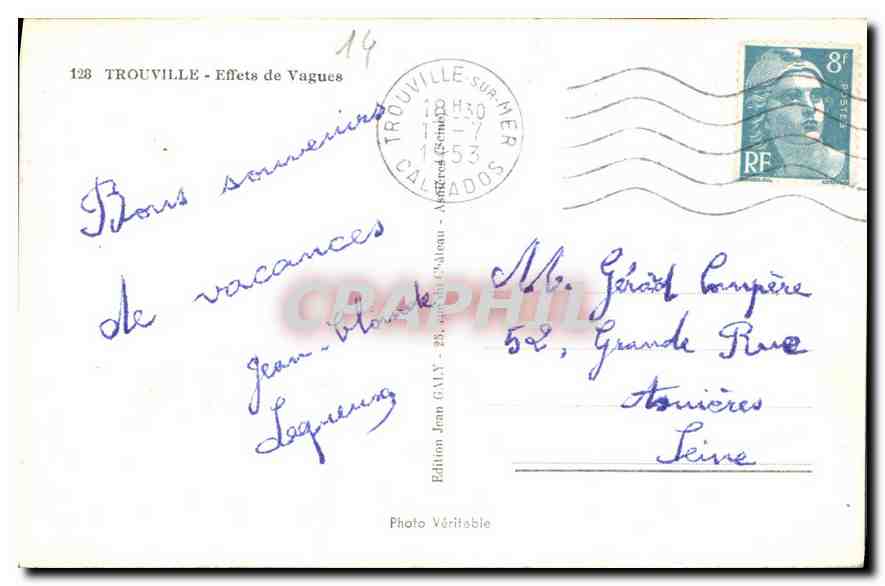 14
128 TROUVILLE - Effets de Vagues
TROUVILLE-SUR-MER
18H30
-7
1953
CALVADOS
8f
POSTES
RF
Bons souvenirs
de vacances
Jean-Claude
Lequeux
M. Gérard Compère
52, Grande Rue
Asnières
Seine
Edition Jean GALY - 25, rue du Château - Asnières (Seine)
CPAPHIL
Photo Véritable